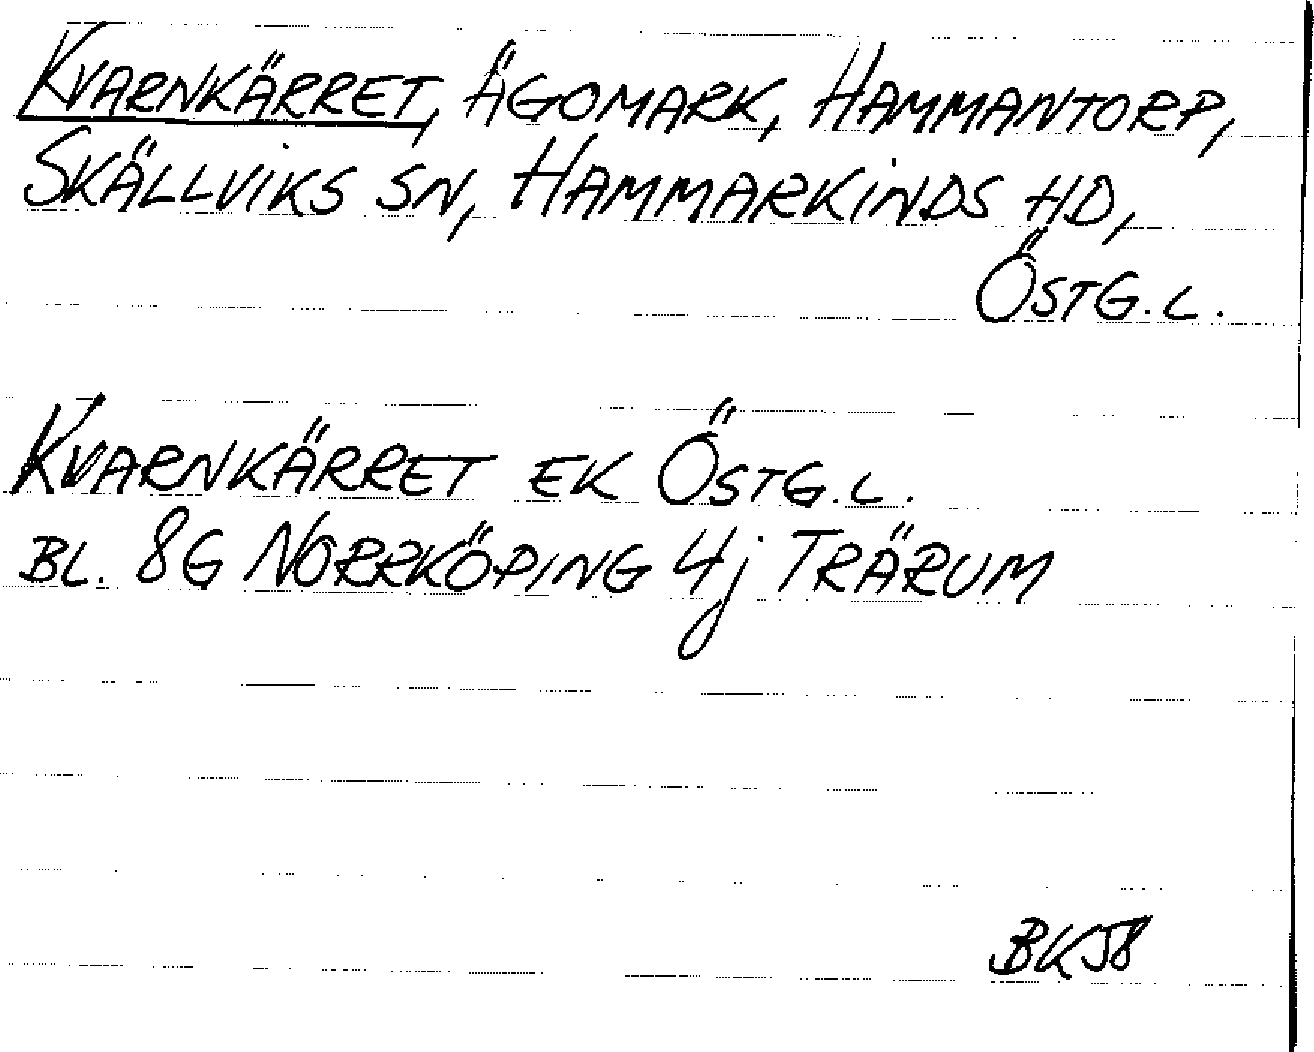 KVARNKÄRRET, ÄGOMARK, HAMMANTORP,
SKÄLLVIKS SN, HAMMARKINDS HD,
ÖSTG.L.
KVARNKÄRRET EK ÖSTG.L.
BL. 8G NORRKÖPING 4j TRÄRUM
BKJ8